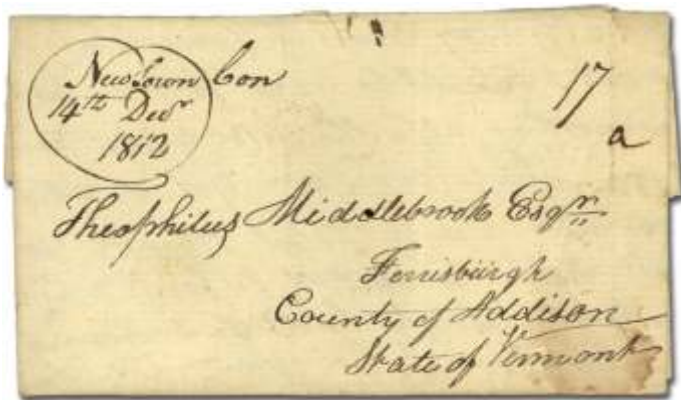 Newtown Con
14th Decr
1812
17
a
Theophilus Middlebrook Esqr
Ferrisburgh
County of Addison
State of Vermont